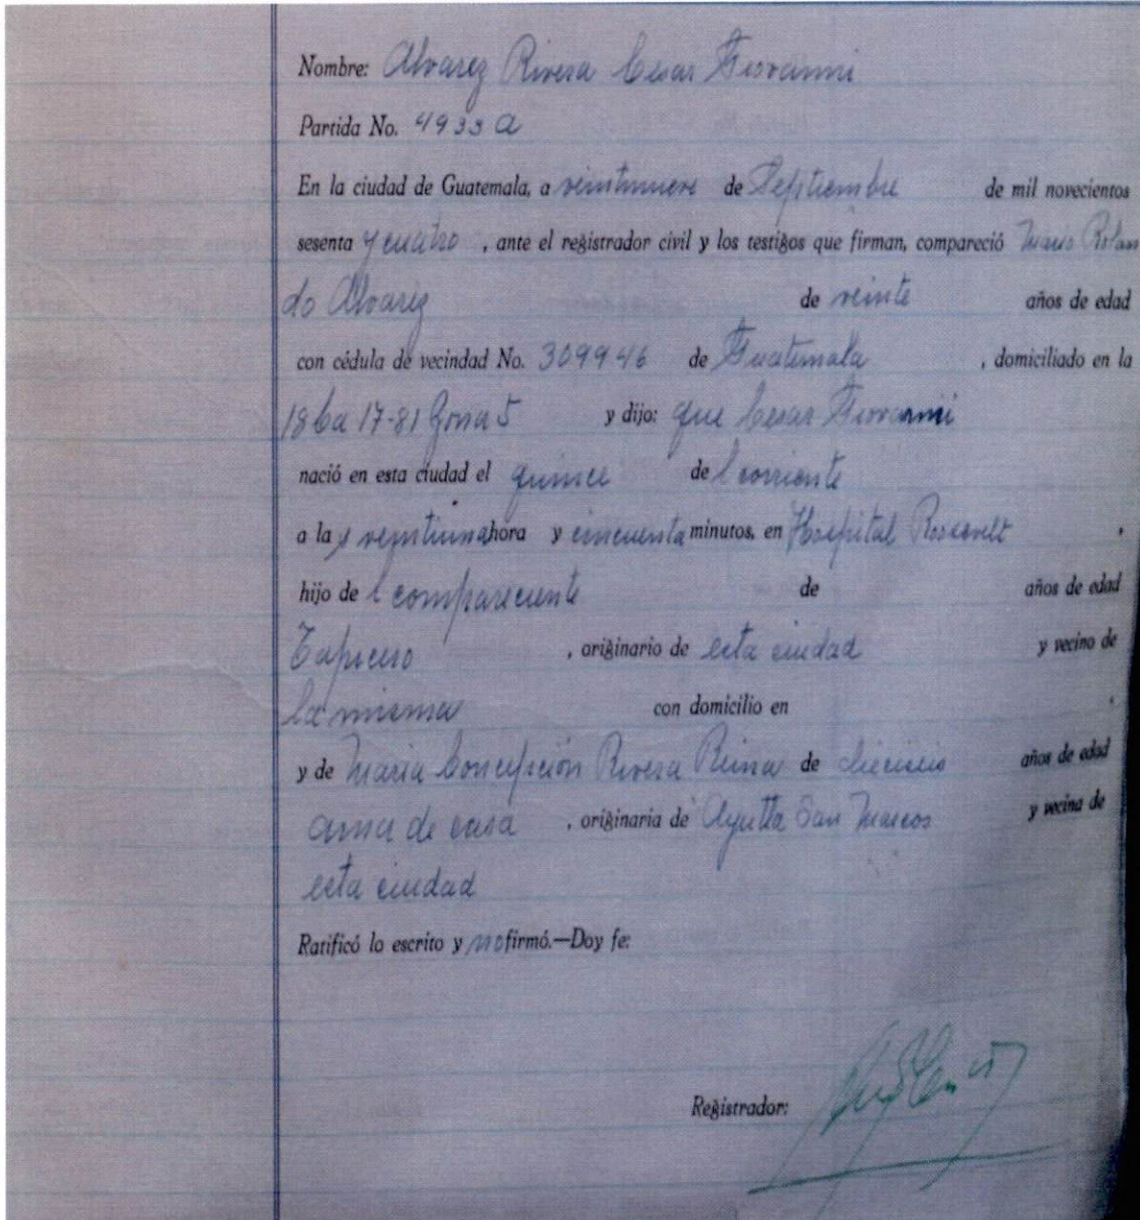 Nombre: Alvarez Rivera Cesar Giovanni
Partida No. 4933 A
En la ciudad de Guatemala, a veintinueve de Septiembre de mil novecientos
sesenta y cuatro, ante el registrador civil y los testigos que firman, compareció Mario Rolan
do Alvarez de veinte años de edad
con cédula de vecindad No. 309946 de Guatemala, domiciliado en la
18 Ca 17-81 Zona 5 y dijo: que Cesar Giovanni
nació en esta ciudad el quince del corriente
a las veintiuna hora y cincuenta minutos, en Hospital Roosevelt.
hijo del compareciente de años de edad
Tapicero, originario de esta ciudad y vecino de
la misma con domicilio en.
y de Maria Concepción Rivera Reina de dieciseis años de edad
ama de casa, originaria de Ayutla San Marcos y vecina de
esta ciudad
Ratificó lo escrito y no firmó.—Doy fe:
Registrador: